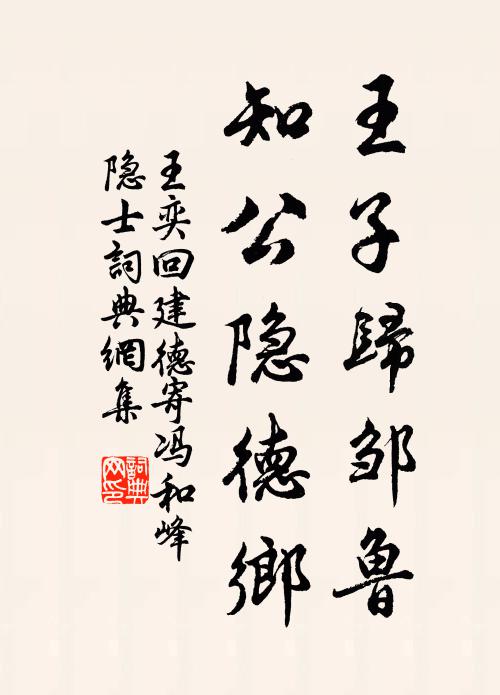 王子歸邹鲁
知公隐德鄉
王奕回建德寄冯和峰
隐士詞典網集
詞典
网印